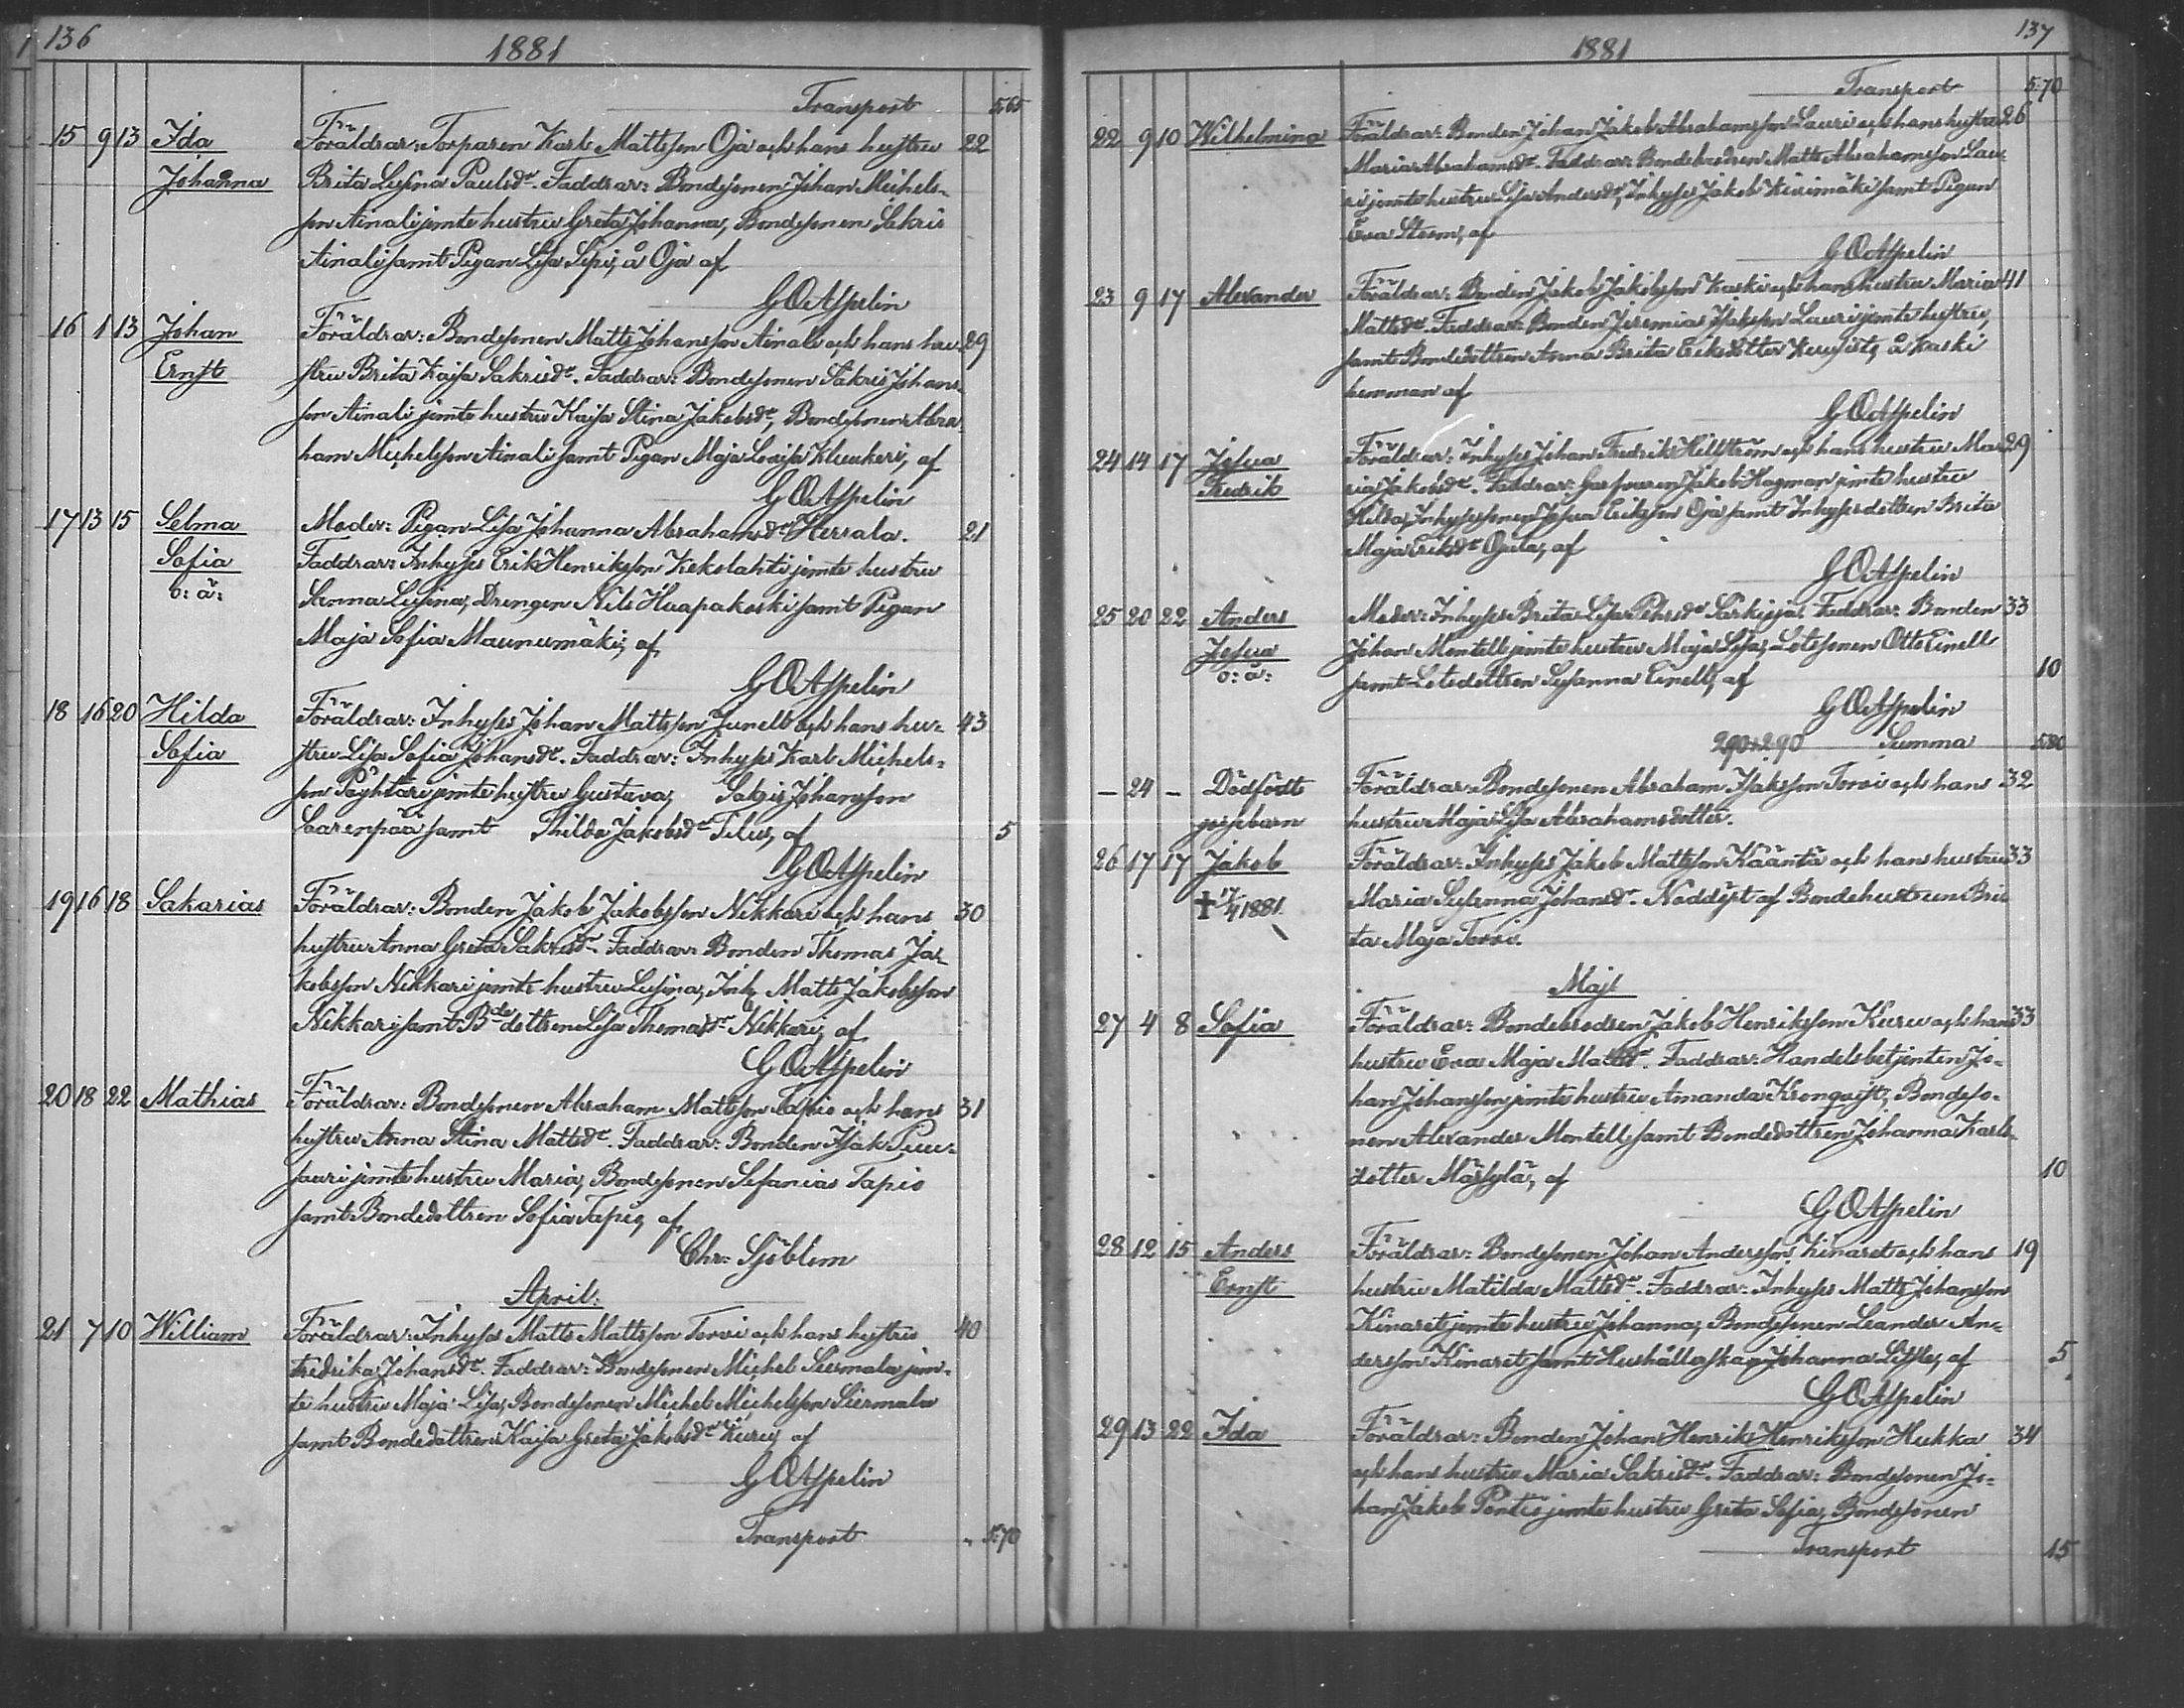 136
1881
Transport 5,65
15 9 13 Ida Föräldrar: Torparen Karl Mattsson Oja och hans hustru 22
Johanna Brita Lusina Paulsdr. Faddrar: Bondesonen Johan Michels-
son Ainali jemte hustru Greta Johanna, Bondesonen Sakris
Ainali samt Pigan Lisa Sipi, å Oja af
G O Aspelin
16 1 13 Johan Föräldrar: Bondesonen Matts Johansson Ainali och hans hu- 29
Ernst stru Brita Kaisa Sakrisdr. Faddrar: Bondesonen Sakris Johans-
son Ainali jemte hustru Kaisa Stina Jakobsdr, Bondesonen Abra-
ham Michelsson Ainali samt Pigan Maja Lovisa Kluukeri, af
G O Aspelin
17 13 15 Selma Moder: Pigan Lisa Johanna Abrahamsdr Herrala. 21
Sofia Faddrar: Inhyses Erik Henriksson Kekolahti jemte hustru
o: ä: Sanna Lusina, Drengen Nils Haapakoski samt Pigan
Maja Sofia Maunumäki, af
G O Aspelin
18 16 20 Hilda Föräldrar: Inhyses Johan Mattsson Junell och hans hu- 43
Sofia stru Lisa Sofia Johansdr. Faddrar: Inhyses Karl Michels-
son Pöyhtäri jemte hustru Gustava, Sakris Johansson
Saarenpää samt Thilda Jakobsdr Tilus, af 5
G O Aspelin
19 16 18 Sakarias Föräldrar: Bonden Jakob Jakobsson Nikkari och hans 30
hustru Anna Greta Sakrisdr. Faddrar: Bonden Thomas Ja-
kobsson Nikkari jemte hustru Lusina, Inh. Matts Jakobsson
Nikkari samt Bdedottren Lisa Thomasdr Nikkari, af
G O Aspelin
20 18 22 Mathias Föräldrar: Bondesonen Abraham Mattsson Tapio och hans 31
hustru Anna Stina Mattsdr. Faddrar: Bonden Isak Puu-
saari jemte hustru Maria, Bondesonen Sefanias Tapio
samt Bondedottren Sofia Tapio, af
Chr: Sjöblom
April:
21 7 10 William Föräldrar: Inhyses Matts Mattsson Torvi och hans hustru 40
Fredrika Johansdr. Faddrar: Bondesonen Michel Siermala jem-
te hustru Maja Lisa, Bondesonen Michel Michelsson Siermala
samt Bondedottren Kaisa Greta Jakobsdr Kuru, af
G O Aspelin
Transport " 5:70
137
1881
Transport 5:70
22 9 10 Wilhelmina Föräldrar: Bonden Johan Jakob Abrahamsson Lauri och hans hustru 26
Maria Abrahamsdr. Faddrar: Bondebrodren Matts Abrahamsson Lau-
ri jemte hustru Lisa Andersdr, Inhyses Jakob Kivimäki samt Pigan
Eva Storm, af
G O Aspelin
23 9 17 Alexander Föräldrar: Bonden Jakob Jakobsson Kaski och hans hustru Maria 41
Mattsdr. Faddrar: Bonden Jeremias Isaksson Lauri jemte hustru,
samt Bondedottren Anna Brita Eriksdotter å Kaski
hemman af
G O Aspelin
24 14 17 Josua Föräldrar: Inhyses Johan Fredrik Hillström och hans hustru Ma- 29
Fredrik ria Jakobsdr. Faddrar: Garfvaren Jakob Hagman jemte hustru
Hilda, Inhysessonen Josua Eriksson Oja samt Inhysesdottren Brita
Maja Eriksdr Ojula, af
G O Aspelin
25 20 22 Anders Moder: Inhyses Brita Lisa Pehrsdr Särkioja. Faddrar: Bonden 33
Josua Johan Montell jemte hustru Maja Lisa, Lotssonen Otto Einell
o: ä: samt Lotsdottren Susanna Einell, af 10
G O Aspelin
2,90+2,90 Summa 5:80
– 24 – Dödfödt Föräldrar: Bondesonen Abraham Isaksson Torvi och hans 32
gossebarn hustru Maja Lisa Abrahamsdotter.
26 17 17 Jakob Föräldrar: Inhyses Jakob Mattsson Kääntä och hans hustru 33
† 17/4 1881 Maria Susanna Johansdr. Nöddöpt af Bondehustrun Bri-
ta Maja Torvi.
Maj
27 4 8 Sofia Föräldrar: Bondebrodren Jakob Henriksson Kuru och hans 33
hustru Eva Maja Mattsdr. Faddrar: Handelsbetjenten Jo-
han Johansson jemte hustru Amanda Kronquist, Bondeso-
nen Alexander Montell samt Bondedottren Johanna Karls-
dotter Märsylä, af 10
G O Aspelin
28 12 15 Anders Föräldrar: Bondesonen Johan Andersson Kinaret och hans 19
Ernst hustru Matilda Mattsdr. Faddrar: Inhyses Matts Johansson
Kinaret jemte hustru Johanna, Bondesonen Leander An-
dersson Kinaret samt Hushållerskan Johanna af 5
G O Aspelin
29 13 22 Ida Föräldrar: Bonden Johan Henrik Henriksson Hukka 34
och hans hustru Maria Sakrisdr. Faddrar: Bondesonen Jo-
han Jakob Pöntiö jemte hustru Greta Sofia, Bondesonen
Transport 15